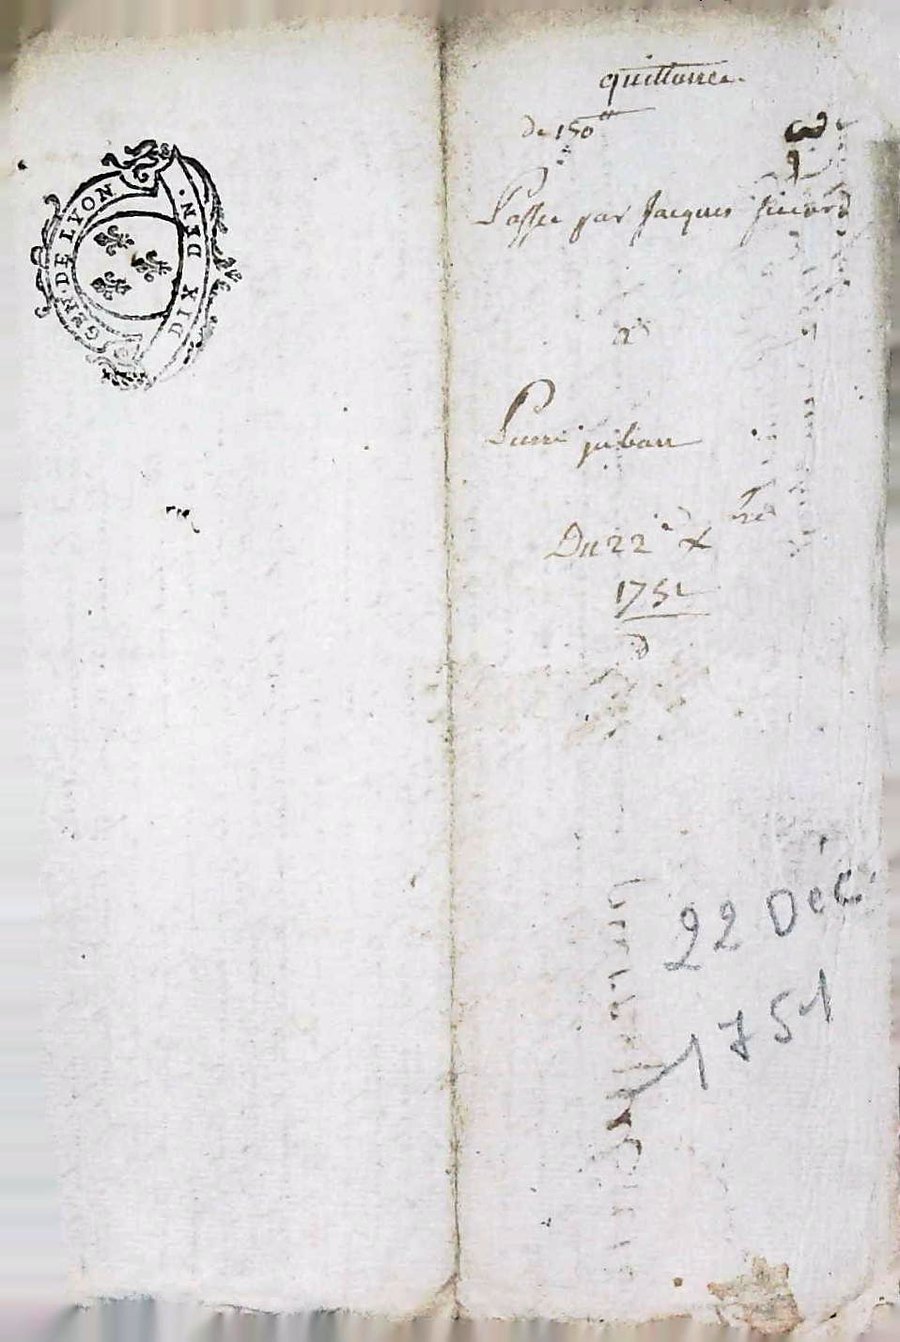 GEN·DE LYON
DIX DEN·
quittance
de 150 ₶
3
Passee par Jacques
a
Pierre
Du 22e Xbre
1751
22 Déc.
1751